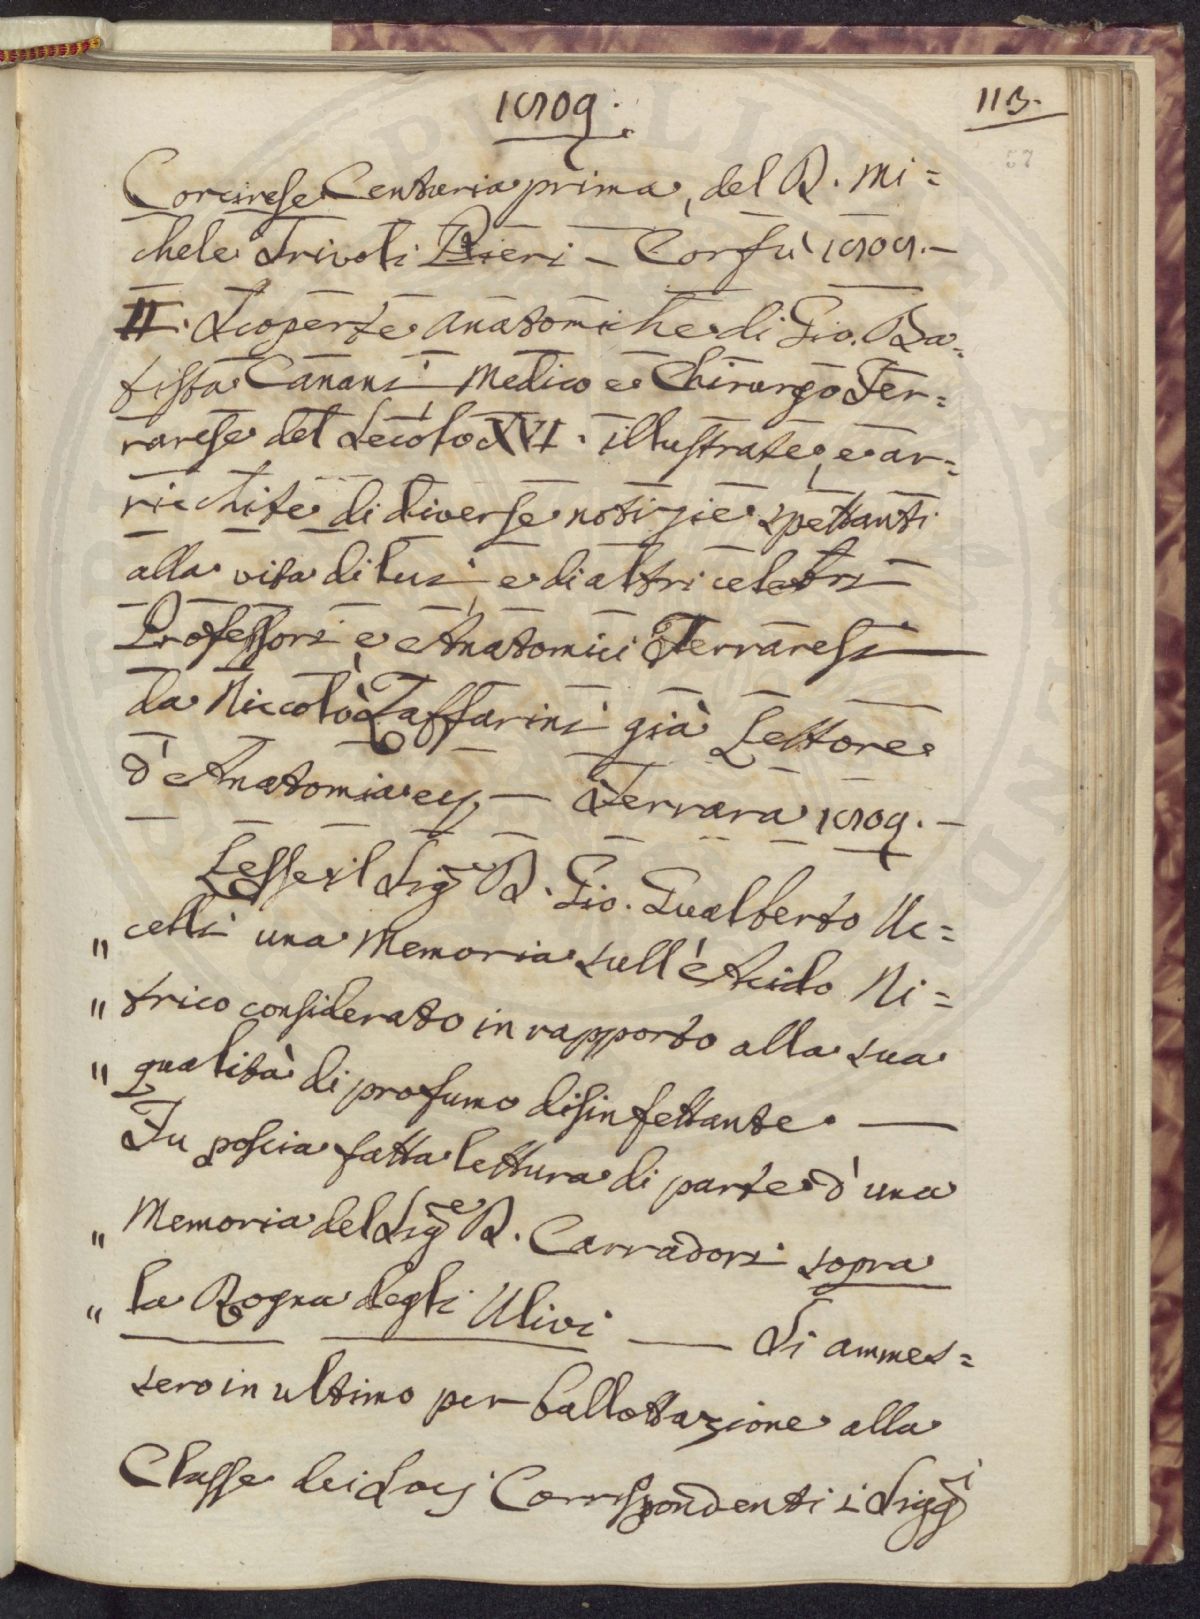 1809.
113.
57
Corcirese Centuria prima, del D. Mi=
chele Trivoli Pieri – Corfù 1809. –
II. Scoperte anatomiche di Gio. Ba=
tista Canani, Medico e Chirurgo Fer=
rarese del Secolo XVI. illustrate, e ar=
ricchite di diverse notizie spettanti
alla vita di lui, e di altri celebri
Professori e Anatomici Ferraresi
da Niccolò Zaffarini già Lettore
d'Anatomia ec. – Ferrara 1809. –
Lesse il Sig.e D. Gio. Gualberto Uc=
" celli una Memoria sull'Acido Ni=
" trico considerato in rapporto alla sua
" qualità di profumo disinfettante. —
Fu poscia fatta lettura di parte d'una
" Memoria del Sig.e D. Carradori sopra
" la Rogna degli Ulivi — Si ammes=
sero in ultimo per ballottazione alla
Classe dei Socj Corrispondenti i Sigg.i